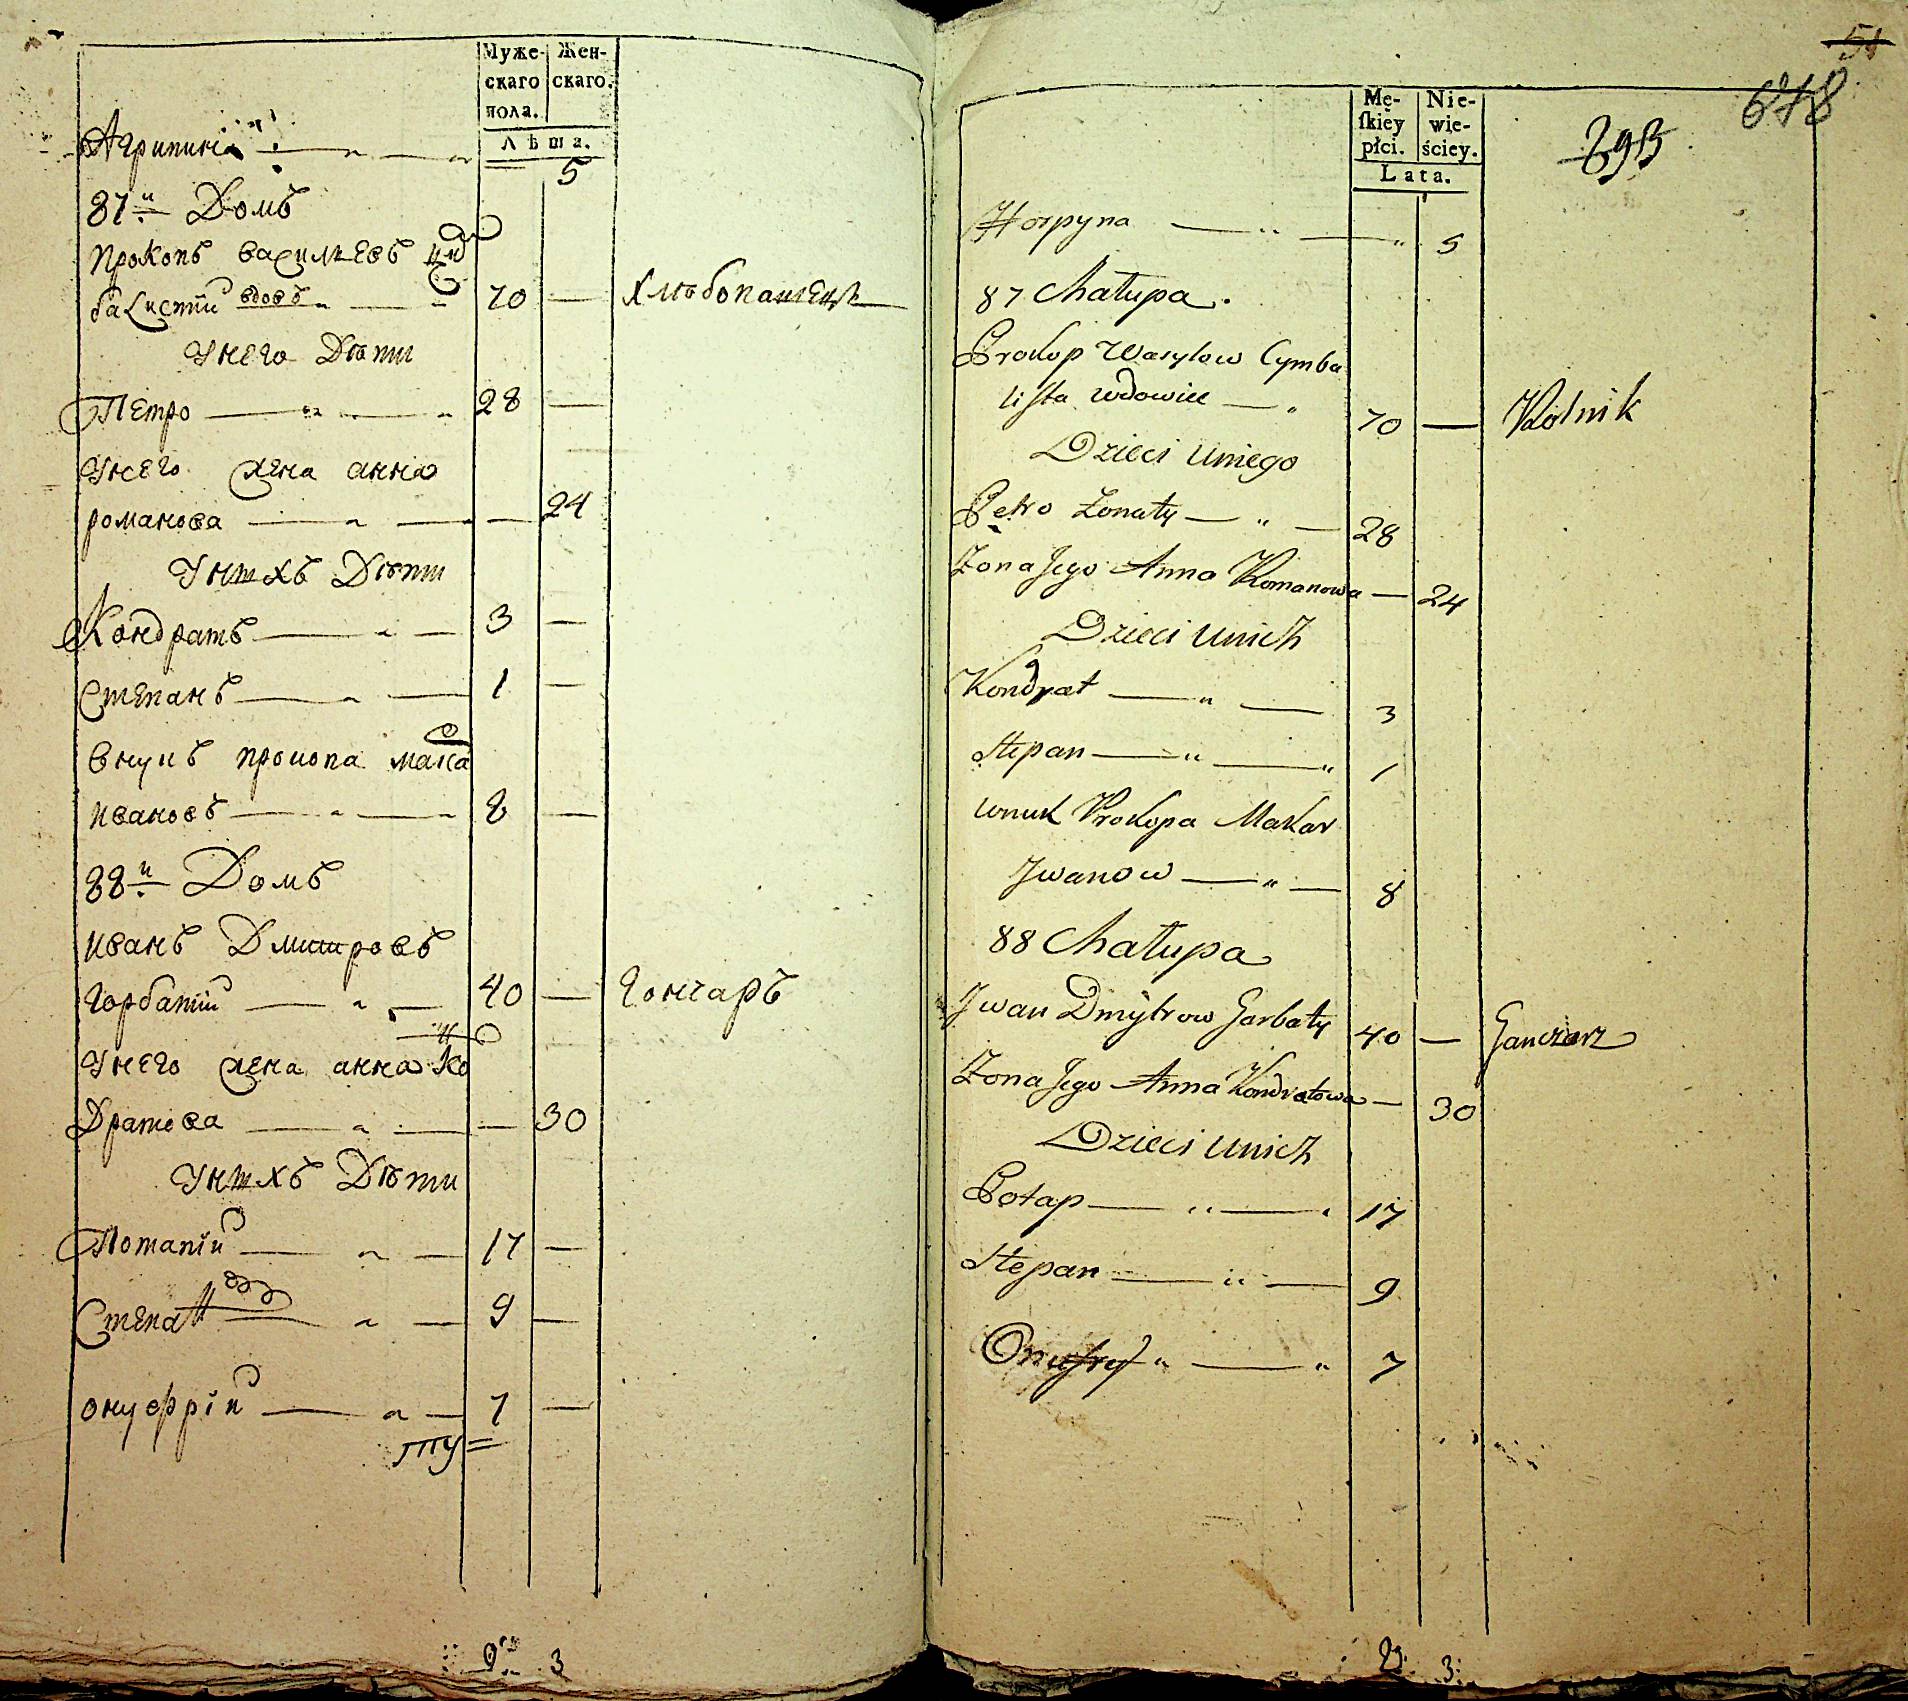 Муже-
скаго
пола.
Жен-
скаго.
Лѣта.
Агрипина 5
87й Домъ
Прокопъ васильевъ цим
балистий вдовъ 70 — хлѣбопашецъ
Унего Дѣти
Петро 28 —
Унего жена анна
романова — 24
Унихъ Дѣти
Кондратъ 3 —
Степанъ 1 —
внукъ прокопа мака
ивановъ 8 —
88й Домъ
иванъ Дмитровъ
Горбатий 40 — Гончаръ
Унего жена анна Ко
Дратова — 30
Унихъ Дѣти
Потапий 17 —
Степан 9 —
онуфрій 7 —
9 3
51
648
Mę-
ſkiey
płci.
Nie-
wie-
ściey.
Lata.
Horpyna 5
87 Chałupa.
Prokop Wasylow Cymba
lista wdowiec 70 — Rolnik
Dzieci Uniego
Petro Żonaty 28
Żona Jego Anna Romanowa — 24
Dzieci Unich
Kondrat 3
Stepan 1
Wnuk Prokopa Makar
Jwanow 8
88 Chałupa
Jwan Dmytrow Garbaty 40 — Ganczarz
Żona Jego Anna Kondratowa — 30
Dzieci Unich
Potap 17
Stepan 9
Onufry 7
9 3